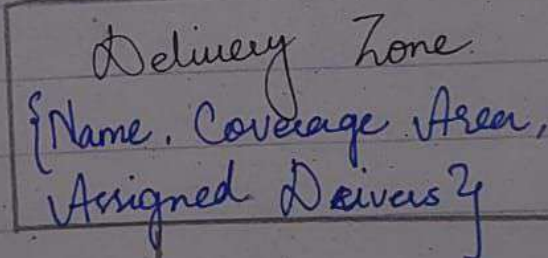 Delivery Zone
{Name, Coverage Area,
Assigned Drivers}